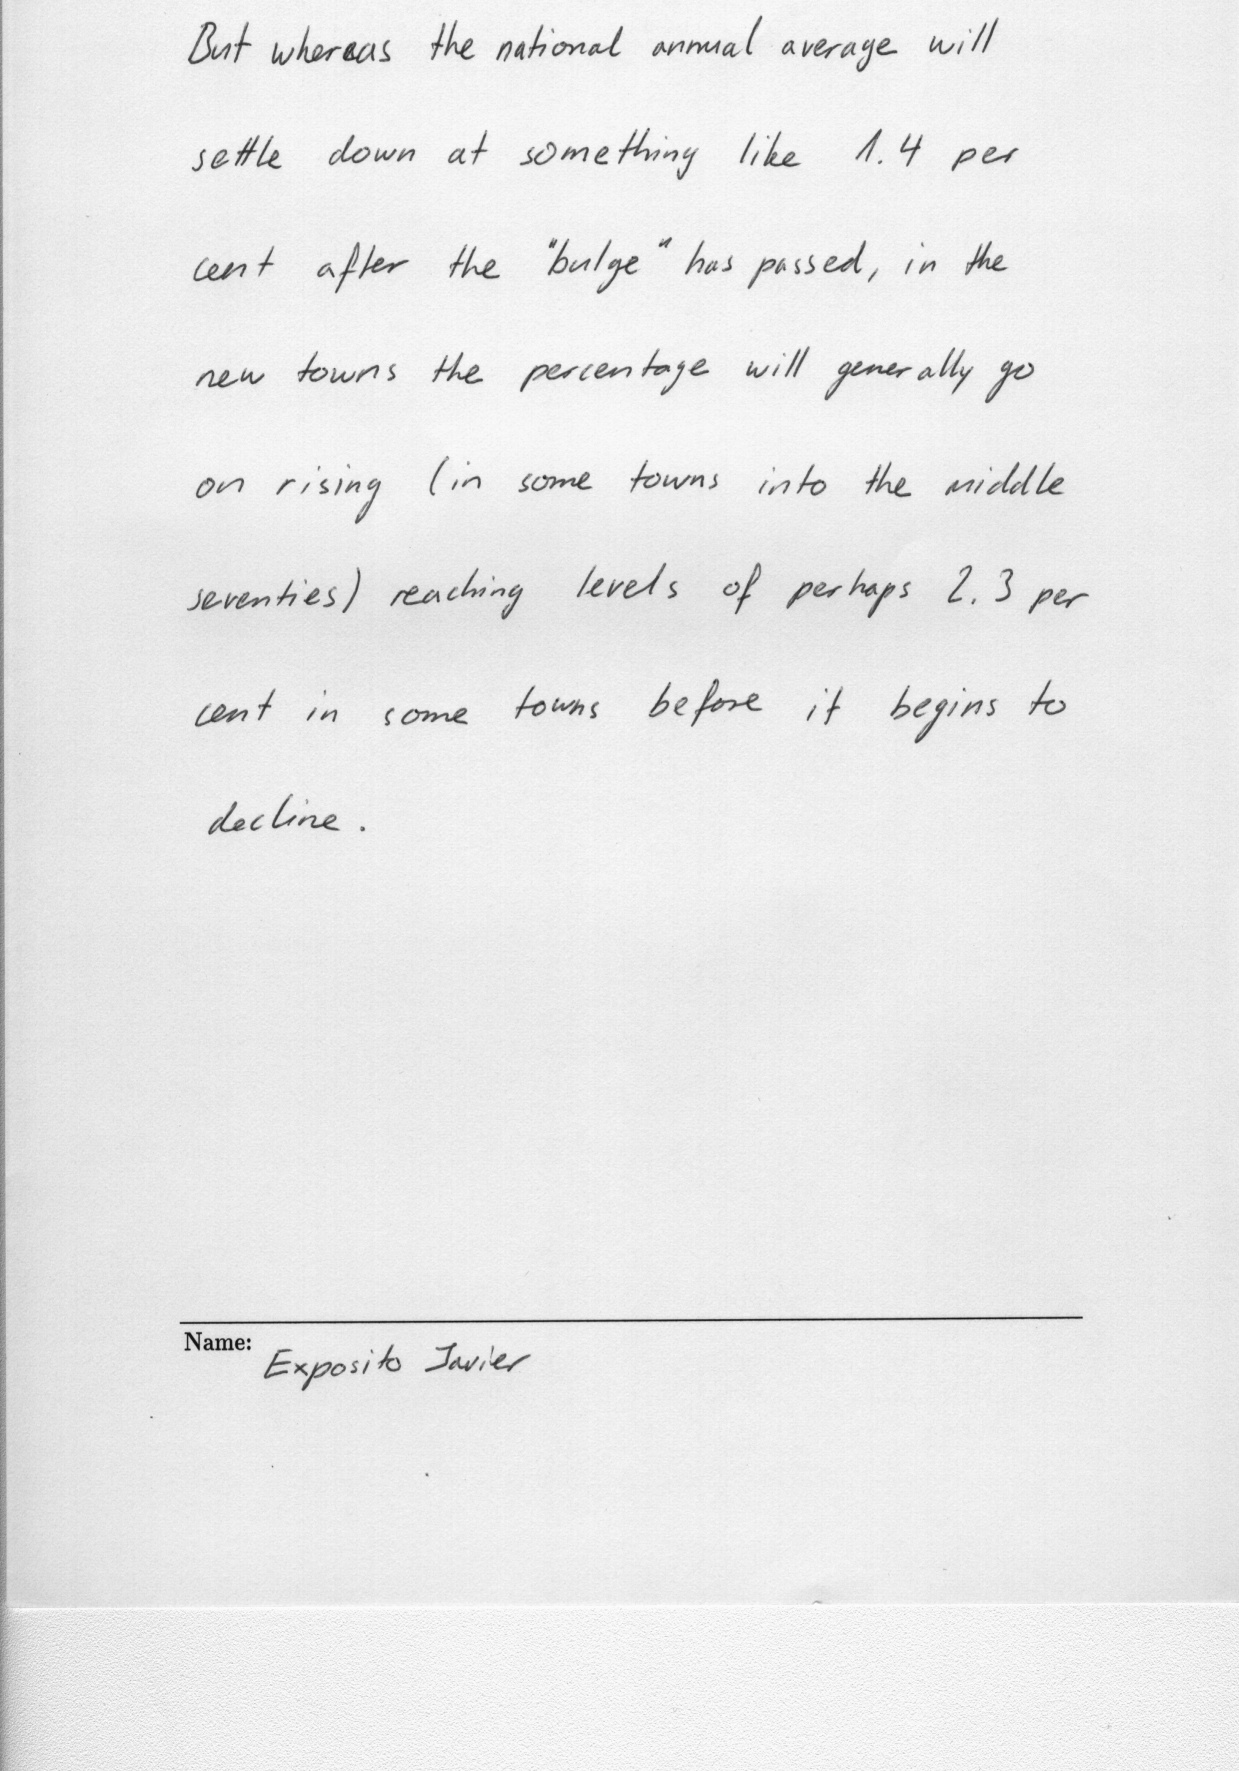 But whereas the national annual average will
settle down at something like 1.4 per
cent after the "bulge" has passed, in the
new towns the percentage will generally go
on rising (in some towns into the middle
seventies) reaching levels of perhaps 2.3 per
cent in some towns before it begins to
decline.
Name:
Exposito Javier